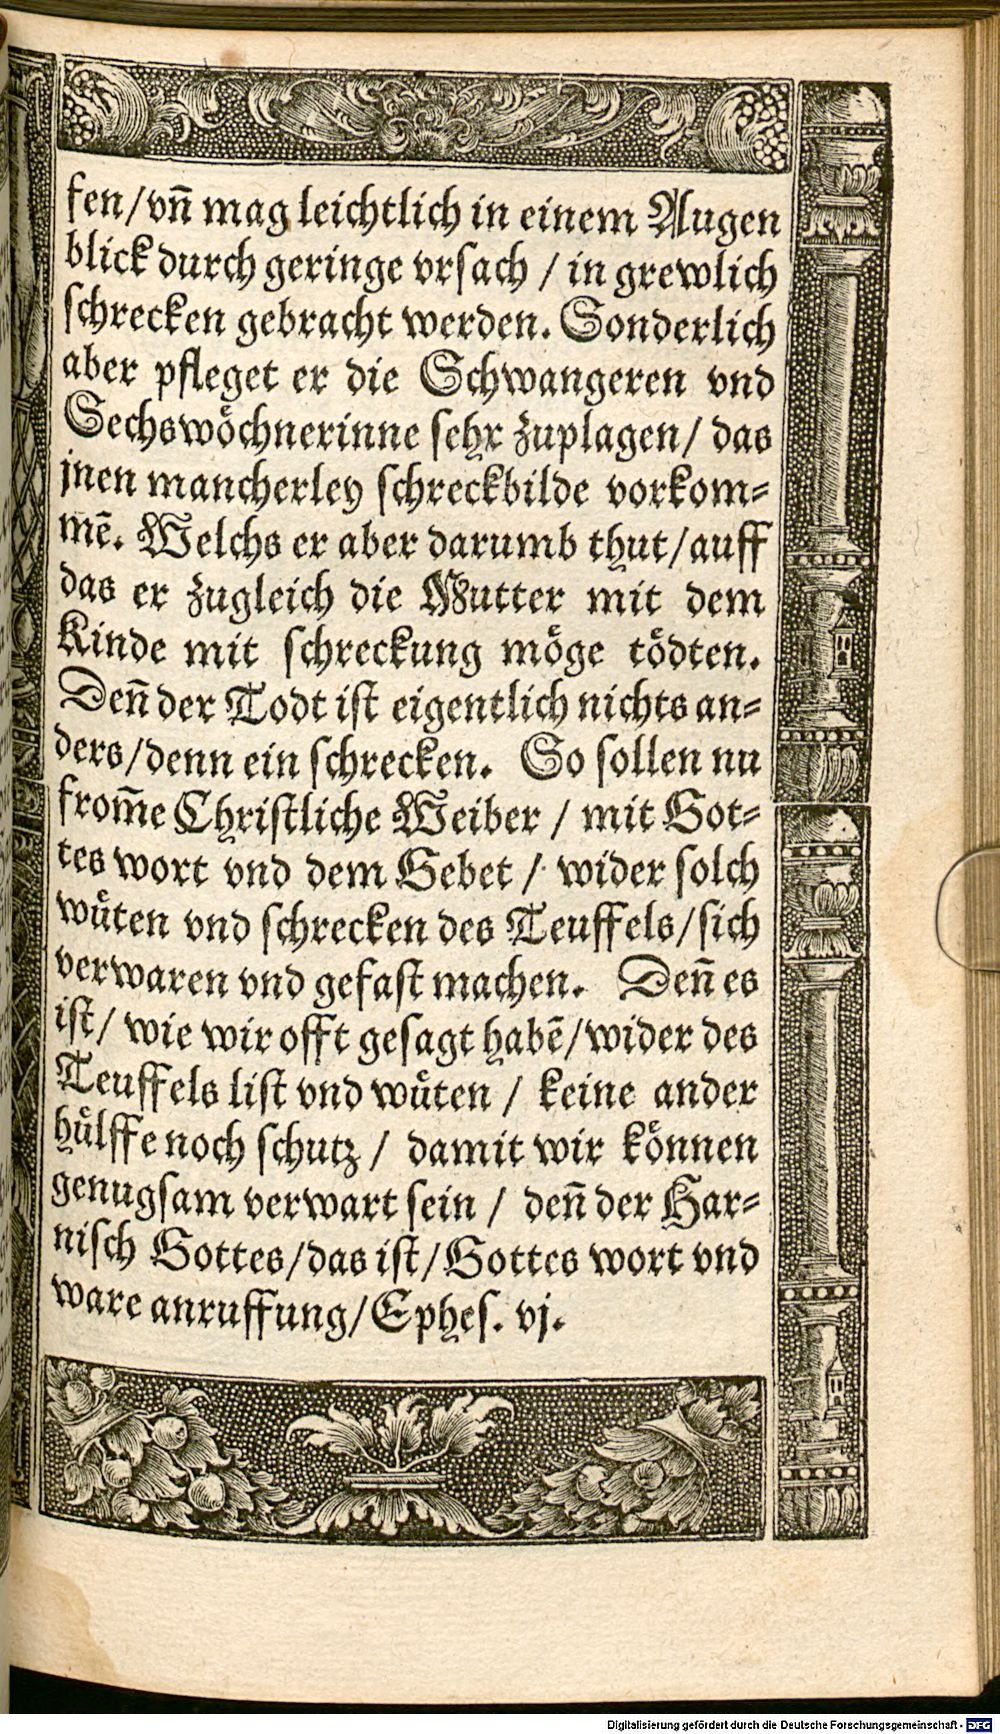 fen/vn̄ mag leichtlich in einem Augen
blick durch geringe vrsach / in grewlich
schrecken gebracht werden. Sonderlich
aber pfleget er die Schwangeren vnd
Sechswoͤchnerinne sehr zuplagen/ das
jnen mancherley schreckbilde vorkom⸗
mē. Welchs er aber darumb thut/auff
das er zugleich die Mutter mit dem
Kinde mit schreckung moͤge toͤdten.
Den̄ der Todt ist eigentlich nichts an⸗
ders/denn ein schrecken. So sollen nu
from̄e Christliche Weiber / mit Got⸗
tes wort vnd dem Gebet / wider solch
wuͤten vnd schrecken des Teuffels/sich
verwaren vnd gefast machen. Den̄ es
ist/ wie wir offt gesagt habē/wider des
Teuffels list vnd wuͤten / keine ander
huͤlffe noch schutz / damit wir koͤnnen
genugsam verwart sein / den̄ der Har⸗
nisch Gottes/das ist/Gottes wort vnd
ware anruffung/Ephes. vj.
Digitalisierung gefördert durch die Deutsche Forschungsgemeinschaft - DFG